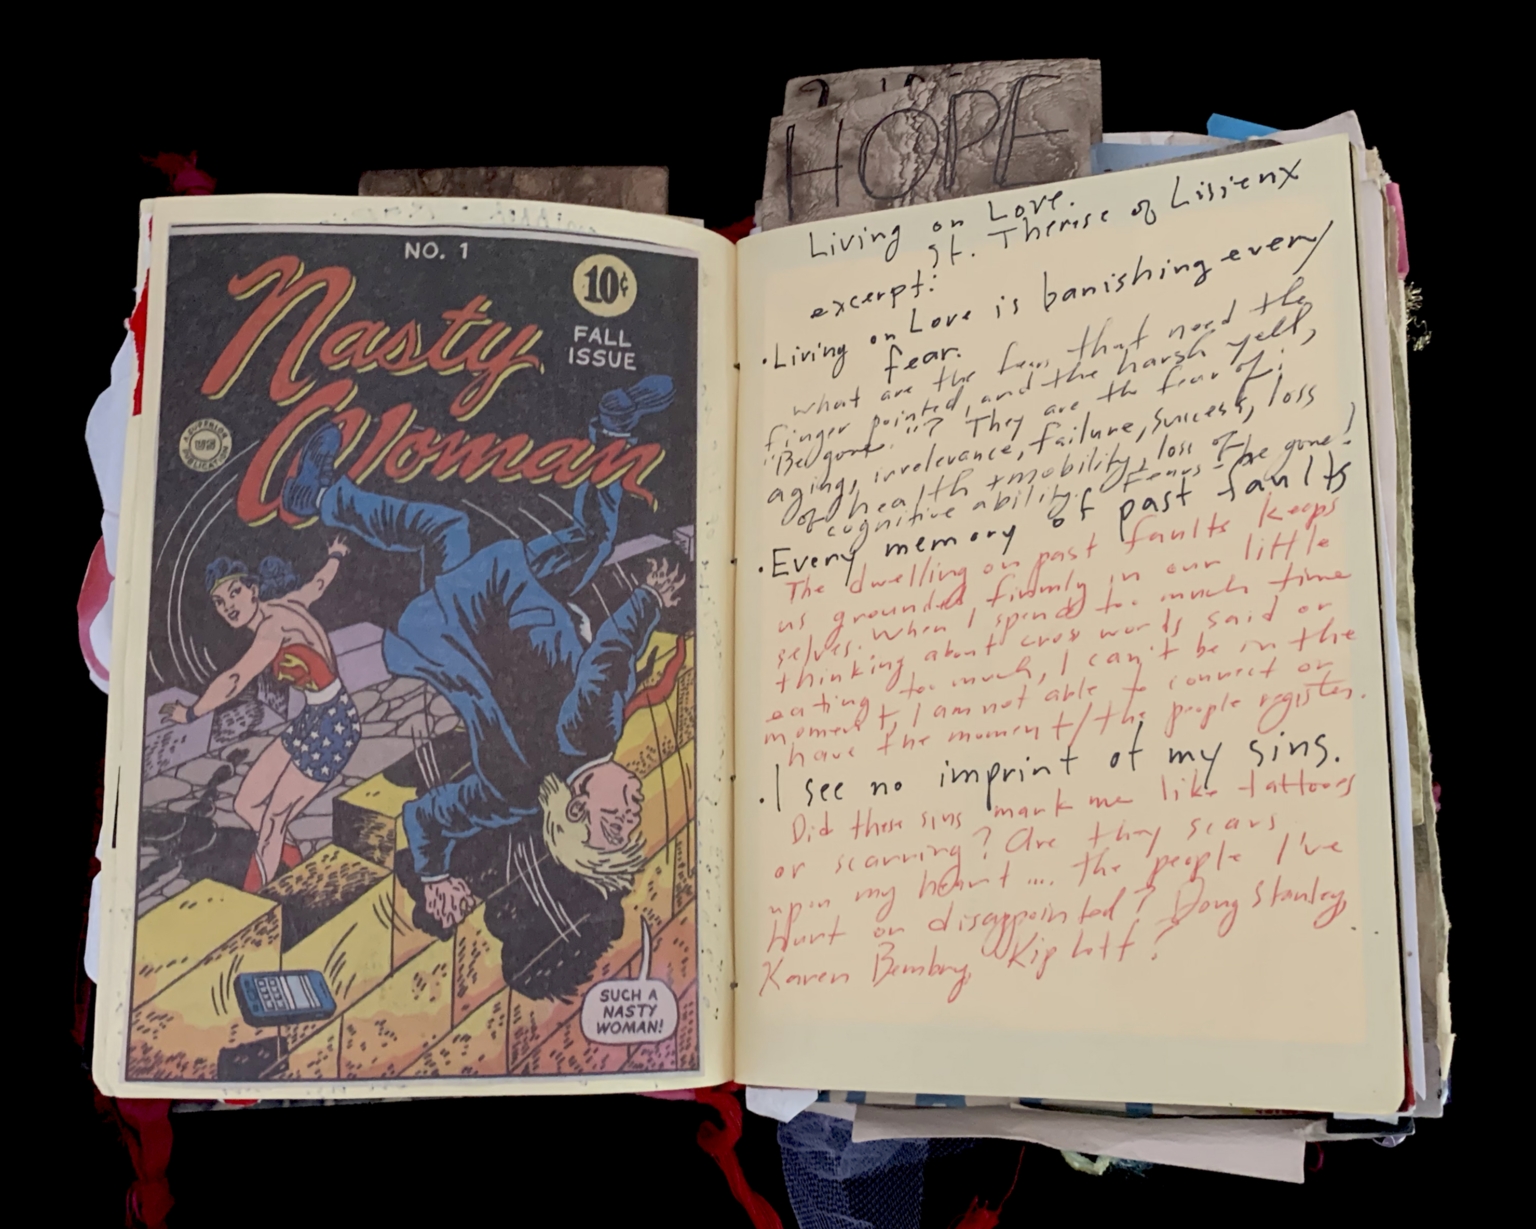 HOPE
NO. 1
10¢
Nasty
FALL
ISSUE
Woman
A SUPERIOR
PUBLICATION
SUCH A
NASTY
WOMAN!
Living on Love.
St. Therese of Lisieux
excerpt:
• Living on Love is banishing every
fear.
What are the fears that need the
finger pointed, and the harsh yell,
"Be gone."? They are the fear of:
aging, irrelevance, failure, success, loss
of health + mobility, loss of
cognitive ability. Fears - be gone!
• Every memory of past faults
The dwelling on past faults keeps
us grounded, firmly in our little
selves. When I spend too much time
thinking about cross words said or
eating too much, I can't be in the
moment, I am not able to connect or
have the moment/the people register.
• I see no imprint of my sins.
Did these sins mark me like tattoos
or scarring? Are they scars
upon my heart... the people I've
Hurt or disappointed? Doug Stanley,
Karen Bembry, Kip